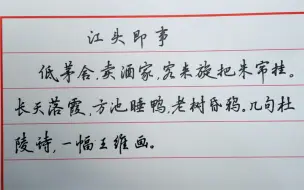 江头即事
低茅舍,卖酒家,客来旋把朱帘挂。
长天落霞,方池睡鸭,老树昏鸦。几句杜
陵诗,一幅王维画。